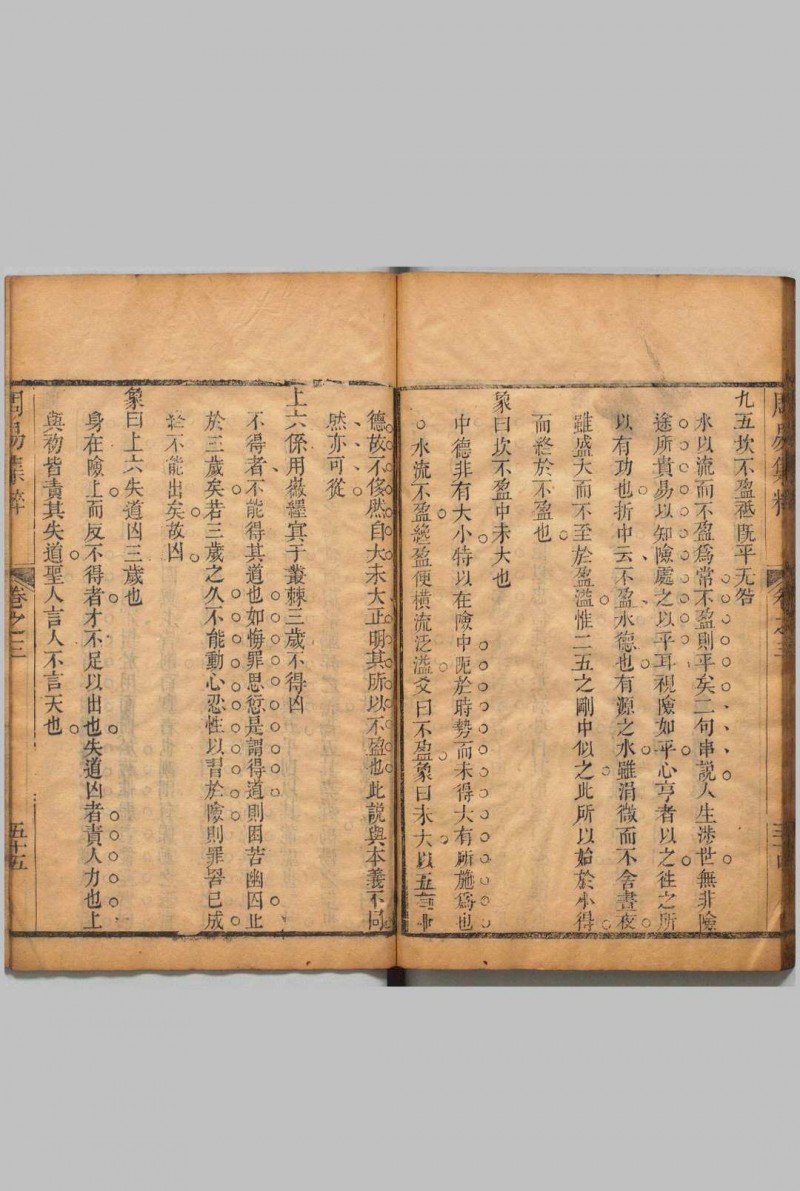 九五坎不盈祗既平无咎
水以流而不盈爲常不盈則平矣二句串説人生渉世無非險
途所貴易以知險處之以平耳視險如平心亨者以之徃之所
以有功也折中云不盈水德也有源之水雖涓微而不舍晝夜
雖盛大而不至於盈溢惟二五之剛中似之此所以始於小得
而終於不盈也
象曰坎不盈中未大也
中德非有大小特以在險中阨於時勢而未得大有所施爲也
○水流不盈纔盈便橫流泛溢爻曰不盈象曰未大以五言中
德故不侈然自大未大正明其所以不盈也此説與本義不同
然亦可從
上六係用徽纆寘于叢棘三歲不得凶
不得者不能得其道也如悔罪思愆是謂得道則困苦幽囚止
於三歲矣若三歲之久不能動心忍性以習於險則罪咎已成
終不能出矣故凶
象曰上六失道凶三歲也
身在險上而反不得者才不足以出也失道凶者責人力也上
與初皆責其失道聖人言人不言天也
周易集粹
卷之三
五十五
周易集粹
卷之三